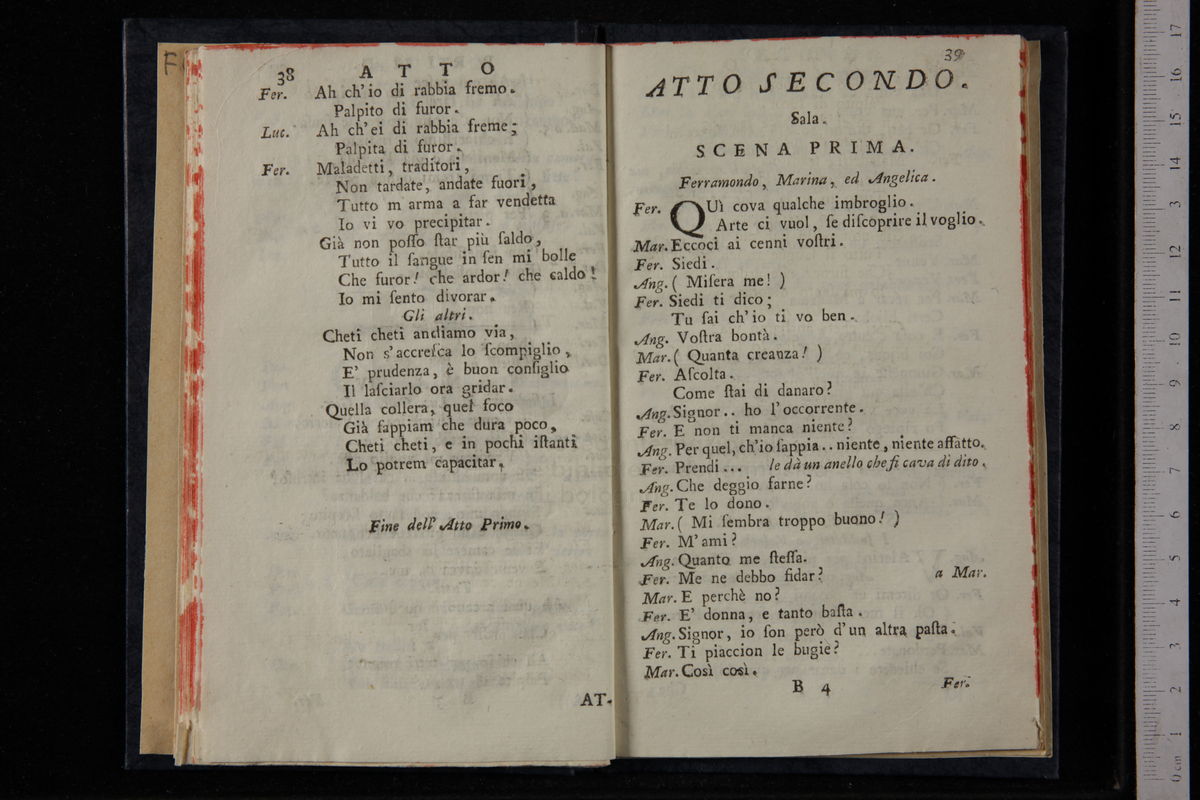 38 ATTO
Fer. Ah ch'io di rabbia fremo.
Palpito di furor.
Luc. Ah ch'ei di rabbia freme;
Palpita di furor.
Fer. Maladetti, traditori,
Non tardate, andate fuori,
Tutto m arma a far vendetta
Io vi vo precipitar.
Già non poſſo ſtar più ſaldo,
Tutto il ſangue in ſen mi bolle
Che furor! che ardor! che caldo!
Io mi ſento divorar.
Gli altri.
Cheti cheti andiamo via,
Non s'accreſca lo ſcompiglio,
E' prudenza, è buon conſiglio
Il laſciarlo ora gridar.
Quella collera, quel foco
Già ſappiam che dura poco,
Cheti cheti, e in pochi iſtanti
Lo potrem capacitar.
Fine dell' Atto Primo.
AT-
39
ATTO SECONDO.
Sala.
SCENA PRIMA.
Ferramondo, Marina, ed Angelica.
Fer. QUì cova qualche imbroglio.
Arte ci vuol, ſe diſcoprire il voglio.
Mar. Eccoci ai cenni voſtri.
Fer. Siedi.
Ang. ( Miſera me! )
Fer. Siedi ti dico;
Tu ſai ch'io ti vo ben.
Ang. Voſtra bontà.
Mar. ( Quanta creanza! )
Fer. Aſcolta.
Come ſtai di danaro?
Ang. Signor.. ho l'occorrente.
Fer. E non ti manca niente?
Ang. Per quel, ch'io ſappia.. niente, niente affatto.
Fer. Prendi... le dà un anello che ſi cava di dito.
Ang. Che deggio farne?
Fer. Te lo dono.
Mar. ( Mi ſembra troppo buono! )
Fer. M'ami?
Ang. Quanto me ſteſſa.
Fer. Me ne debbo fidar? a Mar.
Mar. E perchè no?
Fer. E' donna, e tanto baſta.
Ang. Signor, io ſon però d'un altra paſta.
Fer. Ti piaccion le bugie?
Mar. Così così.
B 4 Fer.